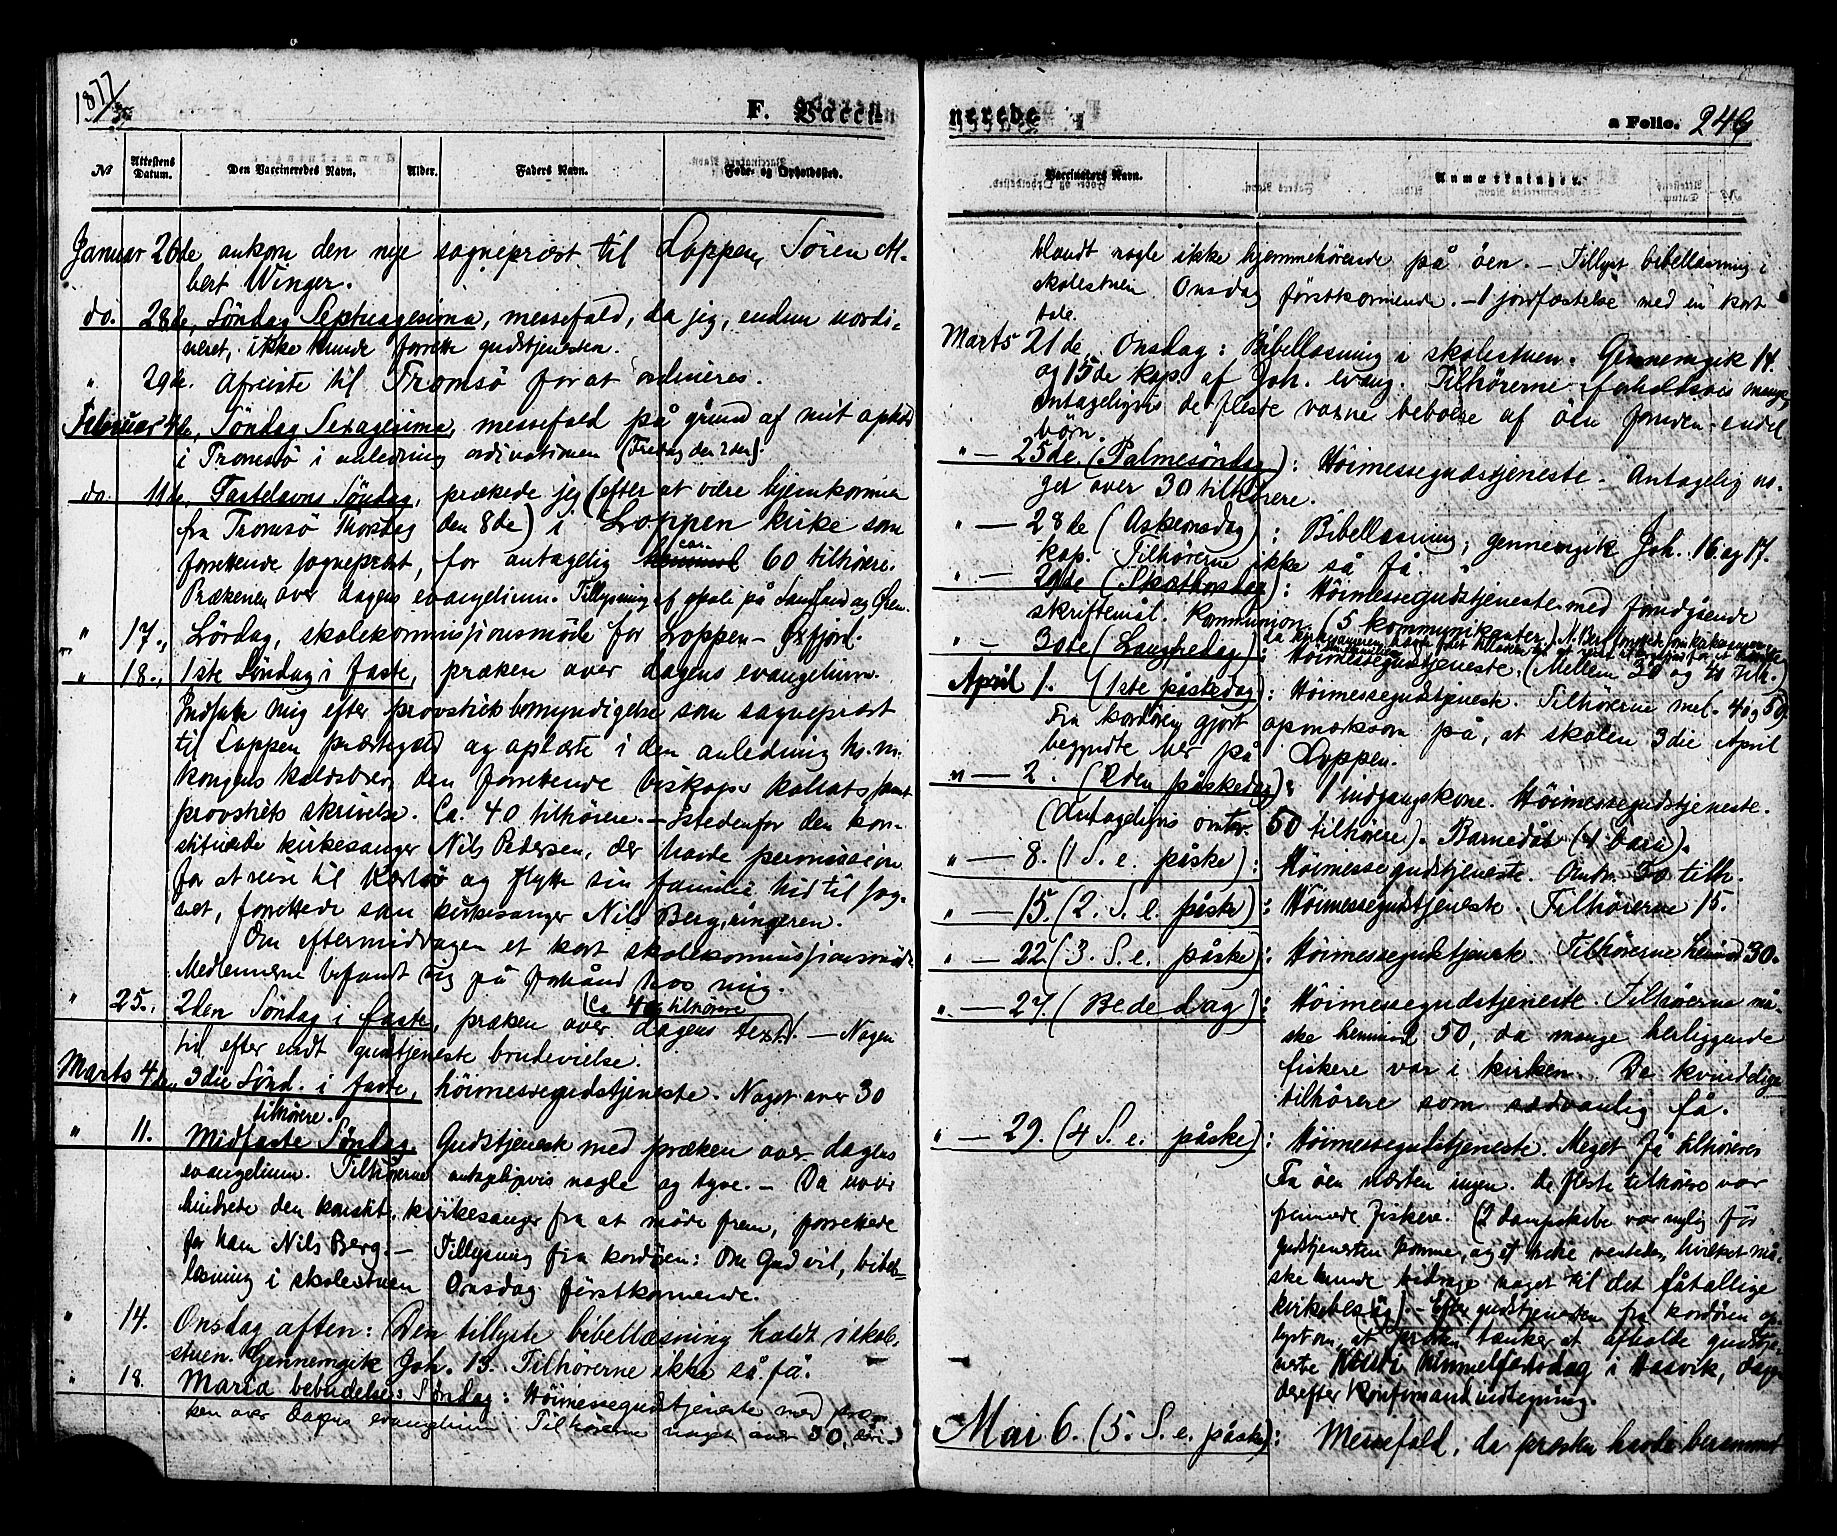 1877
F. Vacci
№
Attestens Datum.
Den Vaccineredes Navn.
Alder.
Faders Navn.
Føde- og Opholdssted.
Januar 26de, ankom den nye sogneprest til Loppen, Sören Al-
bert Winger.
do. 28de, Söndag Septuagesima, messefald, da jeg, endnu uordi-
neret, ikke kunde forrette gudstjenesten.
" 29de. Afreiste til Tromsö for at ordineres.
Februar 4de, Söndag Sexagesima, messefald på grund af mit ophold
i Tromsö i anledning ordinationen (Fredag den 2den).
do. 11de, Fastelavns Söndag, prækede jeg (efter at være hjemkommen
fra Tromsö Thorsdag den 8de) i Loppen kirke som
forrettende sogneprest, for antagelig ca. 60 tilhörere.
Prækenen over dagens evangelium. Tillysning af skole på Sandland og Ören.
" 17., Lördag, skolekommissjonsmöde for Loppen-Öxfjord.
" 18., 1ste Söndag i faste, præken over dagens evangelium.
Indsatte mig efter provstiets bemyndigelse som sogneprest
til Loppen prestegjeld og oplæste i den anledning hs. m.
kongens kaldsbrev, den forrettende biskops kollats samt
provstiets skrivelse. Ca. 40 tilhörere. – Istedenfor den kon-
stituerede kirkesanger Nils Pedersen, der havde permission
for at reise til Karlsö og flytte sin familie hid til sog-
net, forrettede som kirkesanger Nils Berg, ringeren.
Om eftermiddagen et kort skolekommissjonsmöde
Medlemmerne befandt sig på forhånd hos mig.
" 25., 2den Söndag i faste, præken over dagens text. (Ca. 40 tilhörere) – Nogen
tid efter endt gudstjeneste brudevielse.
Marts 4de, 3die Sönd. i faste, höimessegudstjeneste. Noget over 30
tilhörere.
" 11. Midfaste Söndag. Gudstjeneste med præken over dagens
evangelium. Tilhörerne antageligvis nogle og tyve. – Da uveir
hindrede den konstit. kirkesanger fra at möde frem, forrettede
for ham Nils Berg. – Tillysning fra kordören: Om Gud vil, bibel-
læsning i skolestuen Onsdag förstkommende.
" 14. Onsdag aften: Den tillyste bibellæsning holdt i skole-
stuen. Gennemgik Joh. 13. Tilhörerne ikke så få.
" 18. Mariæ bebudelses Söndag: Höimessegudstjeneste med præ-
ken over dagens evangelium. Tilhörerne noget over 30, deri-
nerede
a Folio. 246
Vaccinators Navn.
Anmærkninger.
blandt nogle ikke hjemmehörende på öen. – Tillyst bibellæsning i
skolestuen Onsdag förstkommende. – 1 jordfæstelse med en kort
tale.
Marts 21de, Onsdag: Bibellæsning i skolestuen. Gennemgik 14.
og 15de kap. af Joh. evang. Tilhörerne forholdsvis mange,
antageligvis de fleste voxne beboere af öen foruden endel
börn.
" — 25de. (Palmesöndag): Höimessegudstjeneste. Antagelig no-
get over 30 tilhörere.
" — 28de (Askeonsdag): Bibellæsning; gennemgik Joh. 16. og 17.
kap. Tilhörerne ikke så få.
" — 29de (Skærtorsdag): Höimessegudstjeneste med foregående
skriftemål. Kommunion. (5 kommunikanter)
" — 30te (Langfredag): Höimessegudstjeneste. (Mellem 30 og 40 tilh.)
April 1. (1ste påskedag): Höimessegudstjeneste. Tilhörerne mel. 40 og 50.
Fra kordören gjort opmærksom på, at skolen 3die April
begyndte her på Loppen.
" — 2. (2den påskedag): 1 indgangskone. Höimessegudstjeneste.
(Antageligvis omtr. 50 tilhörere). Barnedåb (4 börn).
" — 8. (1 S. e. påske): Höimessegudstjeneste. Omtr. 30 tilh.
" — 15. (2. S. e. påske): Höimessegudstjeneste. Tilhörerne 15.
" — 22. (3. S. e. påske): Höimessegudstjeneste. Tilhörerne henimod 30.
" — 27. (Bededag): Höimessegudstjeneste. Tilhörerne må-
ske henimod 50, da mange herliggende
fiskere var i kirken. De kvindelige
tilhörere som sædvanlig få.
" — 29. (4 S. e. påske): Höimessegudstjeneste. Meget få tilhörere.
Fra öen næsten ingen. De fleste tilhörere var
fremmede fiskere. (2 dampskibe var nylig för
gudstjenesten komne, og et tredie ventedes, hvilket må-
ske kunde bidrage noget til det fåtallige
kirkebesög). – Efter gudstjenesten fra kordören op-
lyst om, at presten tænker at afholde gudstje-
neste Kristi himmelfartsdag i Hasvik, dagen
derefter konfirmandudlægning.
Mai 6. (5. S. e. påske): Messefald, da presten havde berammet